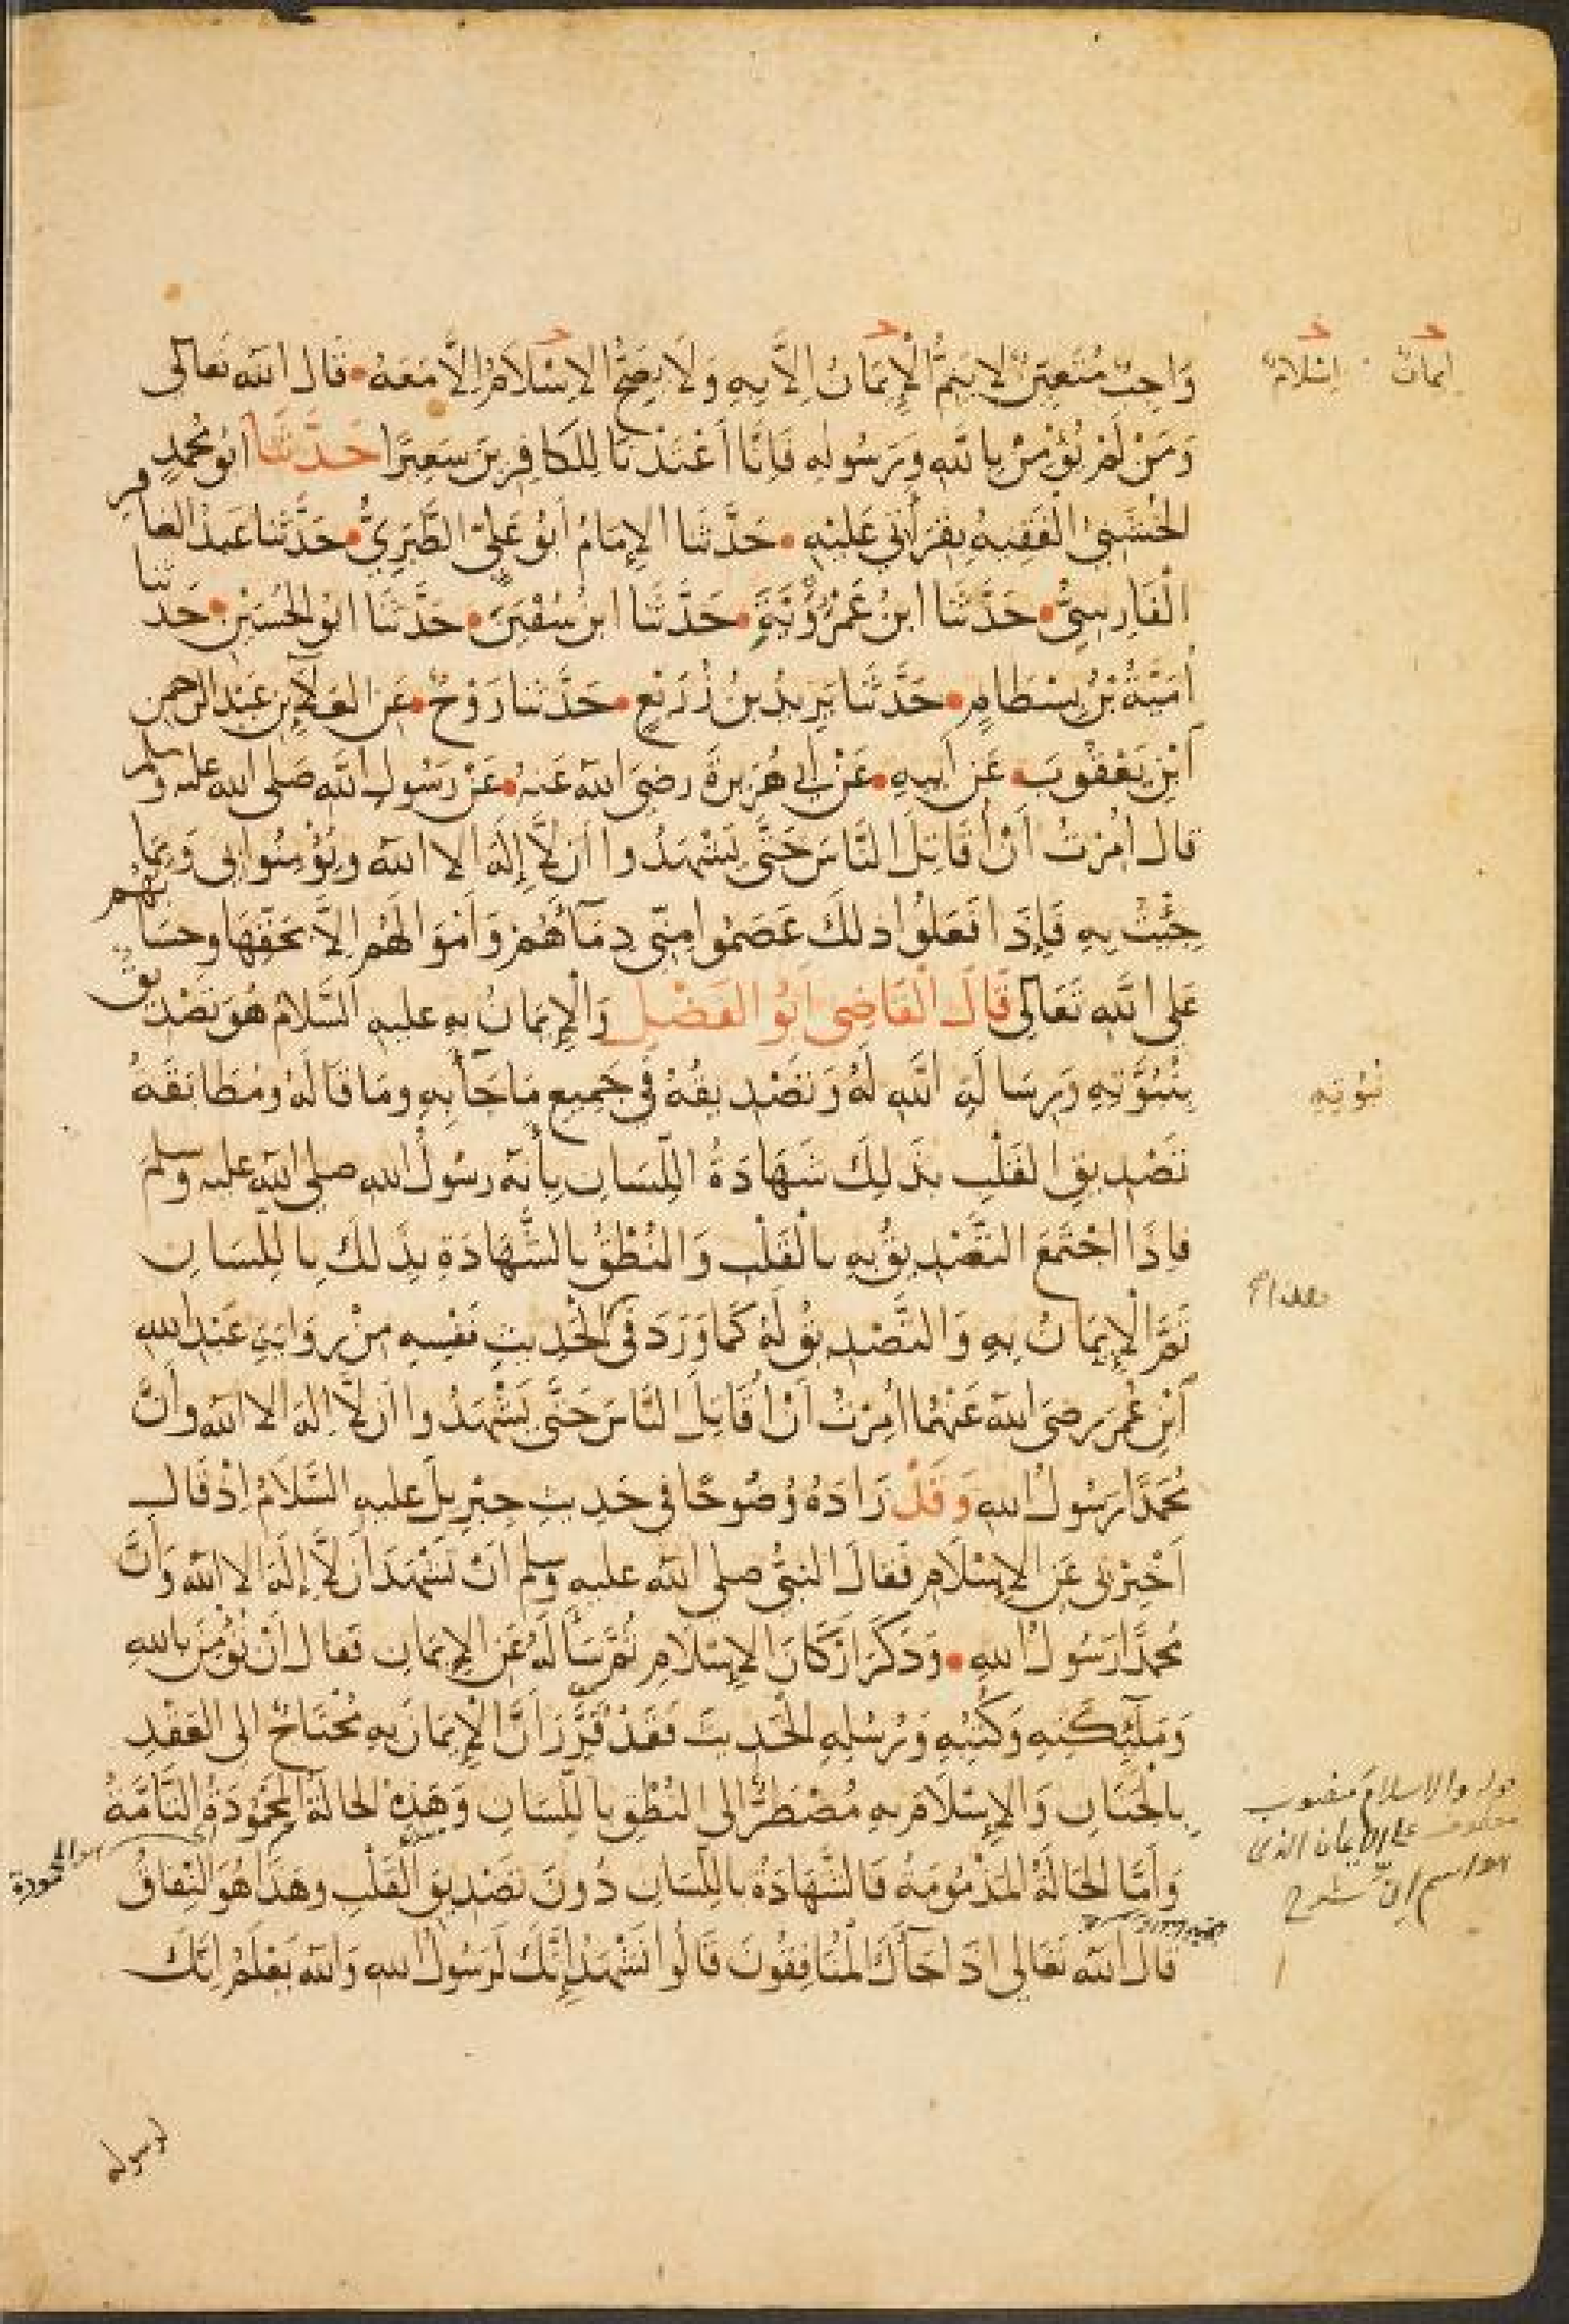 وَاجِبٌ مُتَعَيِّنٌ لَا يَتِمُّ الْإِيمَانُ اِلَّا بِهِ وَلَا يَصِحُّ الْاِسْلَامُ اِلَّا مَعَهُ • قَالَ اللّٰه تَعَالَى
ايمان اسلام
وَمَنْ لَمْ يُؤْمِنْ بِاللّٰهِ وَرَسُولِهِ فَاِنَّا اَعْتَدْنَا لِلْكَافِرِينَ سَعِيرًا حَدَّثَنَا اَبُو مُحَمَّدٍ
الْخُشَنِيُّ الْفَقِيهُ بِقِرَأَتِي عَلَيْهِ • حَدَّثَنَا الْاِمَامُ اَبُو عَلِيٍّ الطَّبَرِيُّ • حَدَّثَنَا عَبْدُ الغافر
الْفَارِسِيُّ • حَدَّثَنَا ابْنُ عَمْرُوَيْهِ • حَدَّثَنَا ابْنُ سُفْيٰنَ • حَدَّثَنَا ابُو الْحُسَيْنِ • حَدَّثنا
اُمَيَّةُ بْنُ بِسْطَامٍ • حَدَّثَنَا يَزِيدُ بْنُ زُرَيْعٍ • حَدَّثَنَا رَوْحٌ • عَنِ الْعَلَآءِ بْنِ عَبْدِ الرَّحمن
اَبْنِ يَعْقُوبَ • عَنْ اَبِيهِ • عَنْ اَبِى هُرَيرةَ رضِىَ اللّٰه عَنهُ • عَنْ رَسُولِ اللّٰهِ صَلى الله عليه وسلم
قال اُمِرْتُ اَنْ اُقَاتِلَ النَّاسَ حَتَّى يَشْهَدُوا اَنْ لَّا إِلَهَ الا اللّٰه ويُؤْمِنُوا بِى وَبِمَا
جِئْتُ بِهِ فَإِذَا فَعَلُوا ذلكَ عَصَمُوا مِنِّي دِمَآءَهُمْ وَاَمْوَالَهُمْ اِلَّا بِحَقِّهَا وحِسَابُهُمْ
عَلَى اللّٰهِ تَعَالَى قَالَ الْقَاضِى اَبُو الْفَضْلِ وَالْإِيمَانُ بِهِ عليهِ السَّلَامُ هُوَ تَصْدِيقُ
بِنُبُوَّتِهِ وَرِسَالَةِ اللّٰهِ لَهُ وَتَصْدِيقُهُ فِي جَمِيعِ مَا جَآءَ بِهِ وما قَالَهُ ومُطَابَقَةُ
نبوته
تَصْدِيقِ الْقَلْبِ بِذَلِكَ شَهَادَةُ اللِّسَانِ بِأَنَّهُ رسُولُ اللهِ صلى الله عليه وسلم
فَاِذَا اجْتَمَعَ التَّصْدِيقُ بِهِ بالْقَلْبِ وَالنُّطْقُ بالشَّهَادَةِ بِذَلكَ بِاللِّسَانِ
تَمَّ الْإِيمَانُ بِهِ وَالتَّصْدِيقُ لَهُ كَمَا وَرَدَ فِى الْحَدِيثِ نَفْسِهِ مِنْ رِوَايَةِ عَبْدِ اللهِ
اَبْنِ عُمَرَ رضِىَ اللّٰه عَنْهُمَا اُمِرْتُ اَنْ اُقَاتِلَ النَّاسَ حَتَّى يَشْهَدُوا اَنْ لَّا اِلهَ الا اللّٰه وَاَنَّ
مُحَمَّدًا رَسُولُ اللهِ وَقَدْ زَادَهُ وُضُوحًا فِى حَدِيثِ جِبْرِيلَ عليهِ السَّلَامُ اِذْ قَالَ
اَخْبِرْنِى عَنِ الْاِسْلَامِ فَقَالَ النَّبِيُّ صلى اللّٰه عليهِ وسلم اَنْ تَشْهَدَ اَنْ لَّا إِلَهَ الا اللّٰه وَاَنَّ
مُحَمَّدًا رَسُولُ اللهِ • وَذَكَرَ اَرْكَانَ الْاِسْلَامِ ثُمَّ سَأَلَهُ عَنِ الْإِيمَانِ فَقَالَ اَنْ تُؤْمِنَ بِاللهِ
وَمَلٰٓئِكَتِهِ وَكُتُبِهِ وَرُسُلِهِ الْحَدِيثَ فَقَدْ قَرَّرَ اَنَّ الْإِيمَانَ بِهِ مُحْتَاجٌ الى الْعَقْدِ
بِالْجَنَانِ وَالْاِسْلَامَ بِهِ مُضْطَرٌّ الى النُّطْقِ بِاللِّسَانِ وَهَذِهِ الْحَالَةُ الْمَحْمُودَةُ التَّامَّةُ
والاسلام منصوب
على الايمان الذى
اسم انّ شرح
المحمودة
وَأَمَّا الْحَالَةُ الْمَذْمُومَةُ فَالشَّهَادَةُ باللِّسَانِ دُونَ تَصْدِيقِ الْقَلْبِ وهَذَا هُوَ النِّفَاقُ
قالَ اللّٰه تَعَالى اِذَا جَآءَكَ الْمُنَافِقُونَ قَالُوا نَشْهَدُ اِنَّكَ لَرَسُولُ اللهِ وَاللّٰه يَعْلَمُ اِنَّكَ
لرسوله